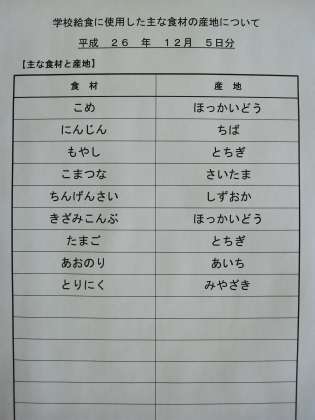 学校給食に使用した主な食材の産地について
平成 26 年 12月 5日分
【主な食材と産地】
食 材 産 地
こめ ほっかいどう
にんじん ちば
もやし とちぎ
こまつな さいたま
ちんげんさい しずおか
きざみこんぶ ほっかいどう
たまご とちぎ
あおのり あいち
とりにく みやざき